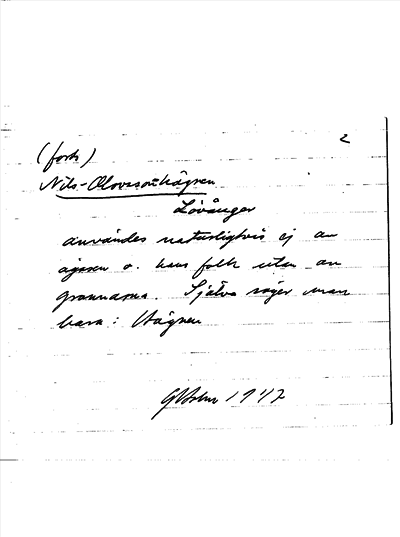 2
(forts)
Nils-Olovsonhägnen
Lövånger
användes naturligtvis ej av
ägaren o. hans folk utan av
grannarna. Själva säger man
bara: Hägnen
GHolm 1947